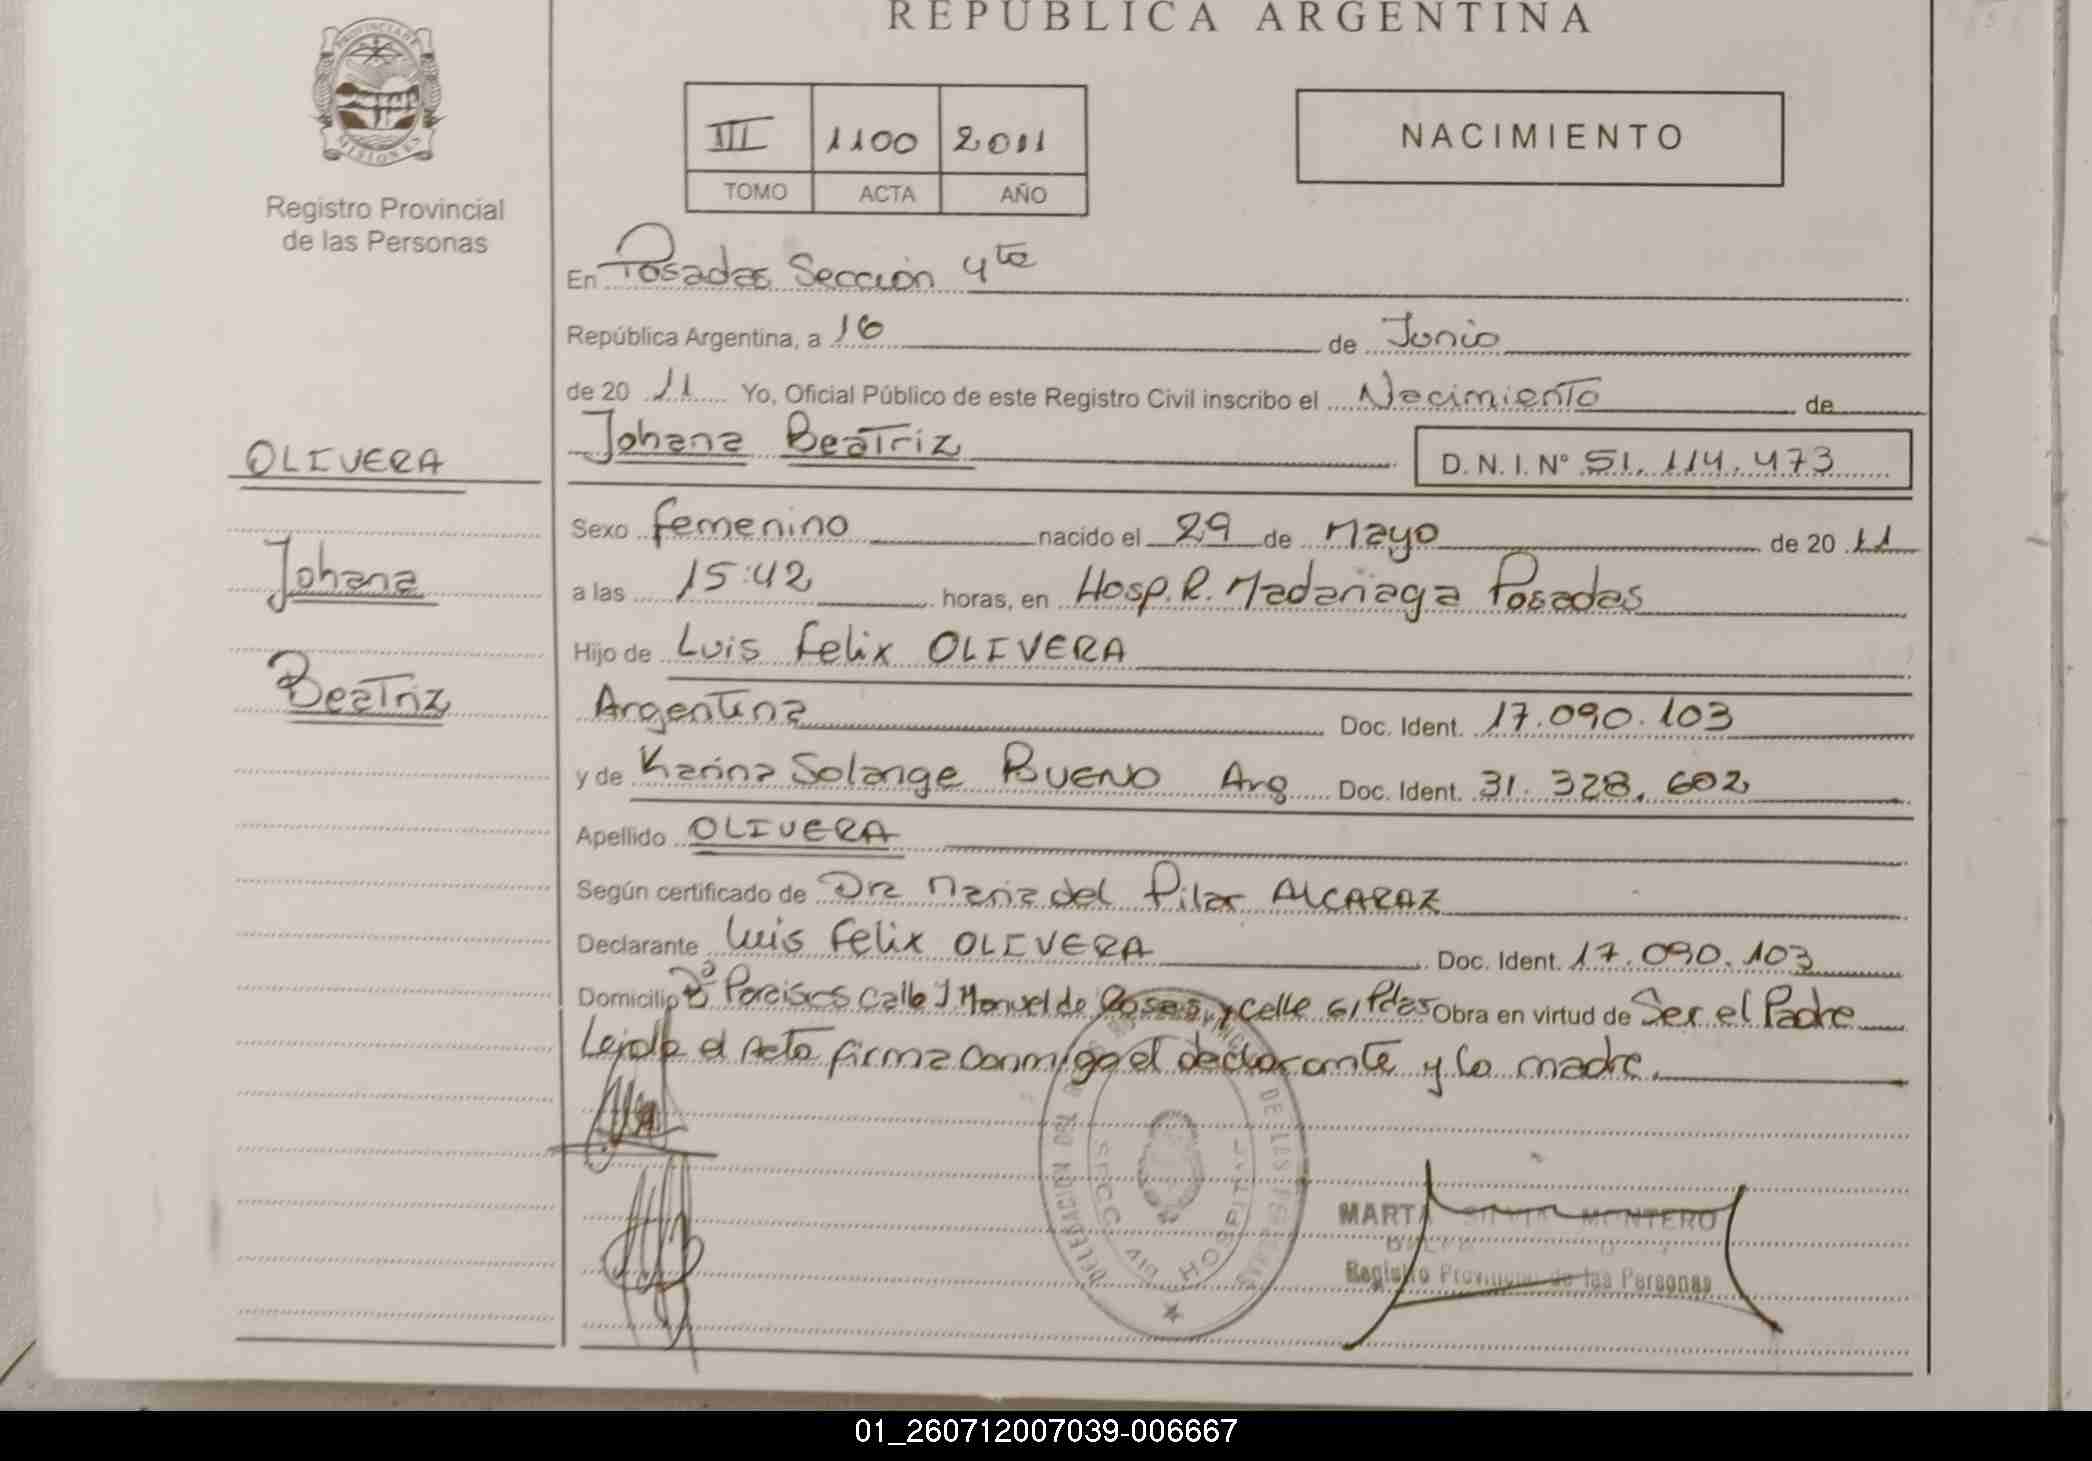 REPÚBLICA ARGENTINA
PROVINCIA DE
MISIONES
Registro Provincial
de las Personas
III 1100 2011
TOMO ACTA AÑO
NACIMIENTO
En Posadas Sección 4ta
República Argentina, a 16 de Junio
de 20 11 Yo, Oficial Público de este Registro Civil inscribo el Nacimiento de
Johana Beatriz D.N.I. Nº 51.114.473
OLIVERA
Johana
Beatriz
Sexo femenino nacido el 29 de Mayo de 20 11
a las 15:42 horas, en Hosp. R. Madariaga Posadas
Hijo de Luis Felix OLIVERA
Argentina Doc. Ident. 17.090.103
y de Karina Solange BUENO Arg Doc. Ident. 31.328.602
Apellido OLIVERA
Según certificado de Dra Maria del Pilar ALCARAZ
Declarante Luis Felix OLIVERA Doc. Ident. 17.090.103
Domicilio Bº Paraisos calle J Manuel de Rosas y calle 61 Pdas Obra en virtud de Ser el Padre
Leida el Acta firma conmigo el declarante y la madre.
DELEGACION DEL DE LAS PERSONAS
SECC 4ta HOSPITAL
MARTA SILVIA MONTERO
Registro Provincial de las Personas
01_260712007039-006667